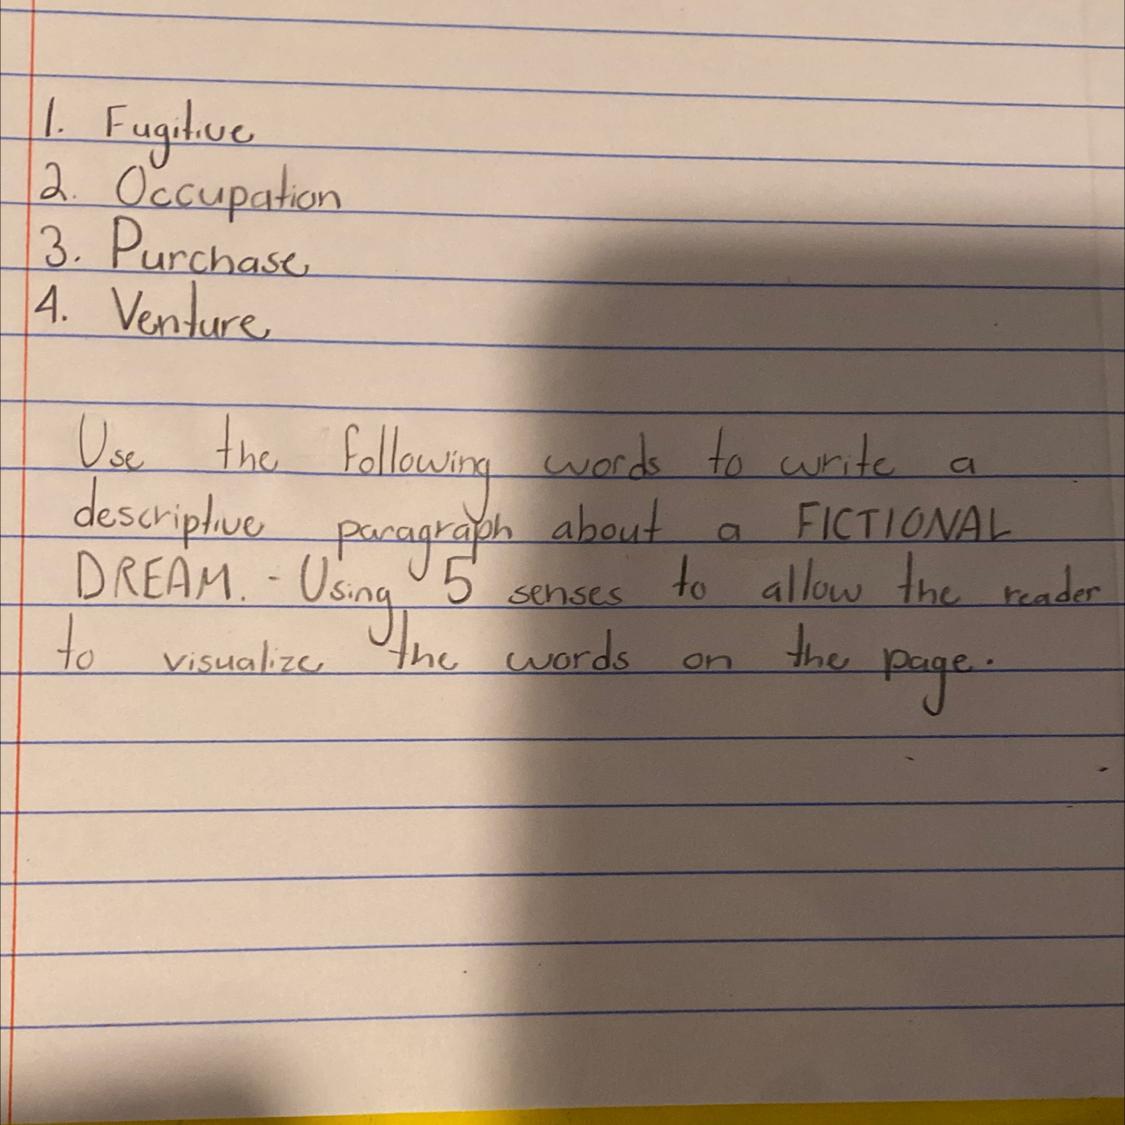 1. Fugitive
2. Occupation
3. Purchase
4. Venture
Use the following words to write a
descriptive paragraph about a FICTIONAL
DREAM. - Using 5 senses to allow the reader
to visualize the words on the page.